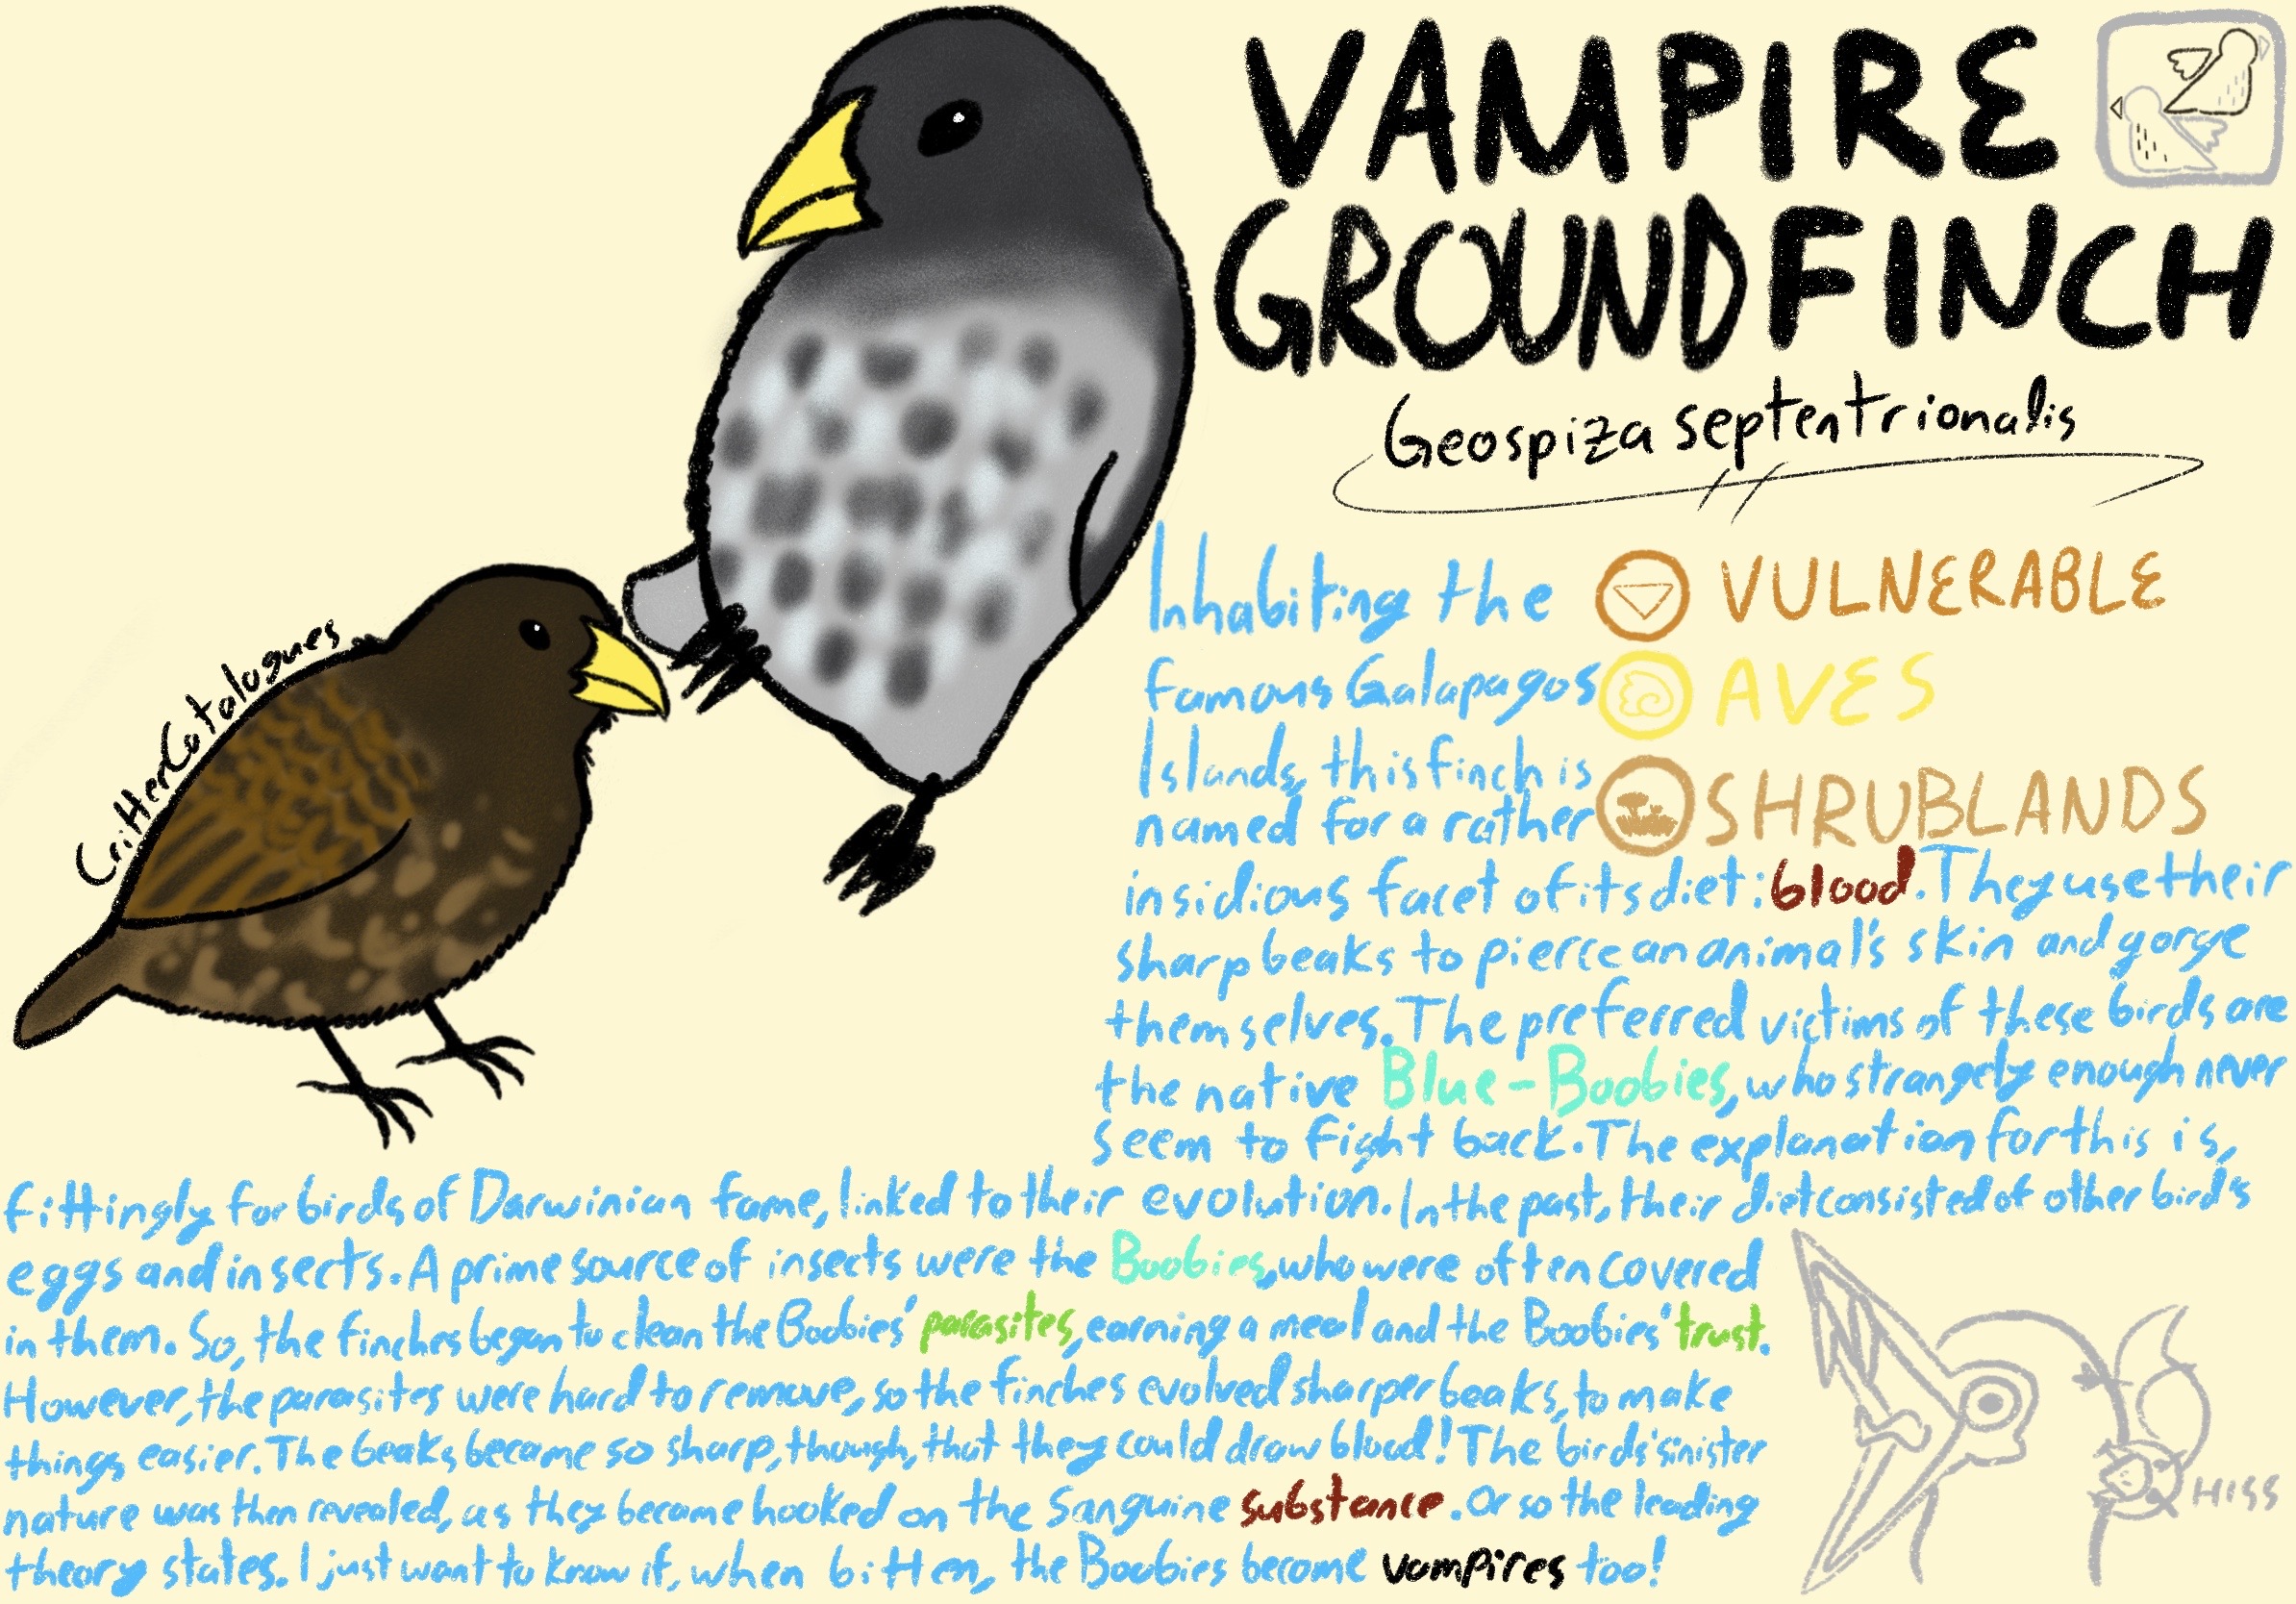 VAMPIRE
GROUND FINCH
Geospiza septentrionalis
VULNERABLE
AVES
SHRUBLANDS
CritterCatalogues
Inhabiting the
famous Galapagos
Islands, this finch is
named for a rather
insidious facet of its diet: blood. They use their
sharp beaks to pierce an animal's skin and gorge
themselves. The preferred victims of these birds are
the native Blue-Boobies, who strangely enough never
seem to fight back. The explanation for this is,
fittingly for birds of Darwinian fame, linked to their evolution. In the past, their diet consisted of other bird's
eggs and insects. A prime source of insects were the Boobies, who were often covered
in them. So, the finches began to clean the Boobies' parasites, earning a meal and the Boobies' trust.
However, the parasites were hard to remove, so the finches evolved sharper beaks, to make
things easier. The beaks became so sharp, though, that they could draw blood! The birds' sinister
nature was then revealed, as they became hooked on the sanguine substance. Or so the leading
theory states. I just want to know if, when bitten, the Boobies become vampires too!
HISS